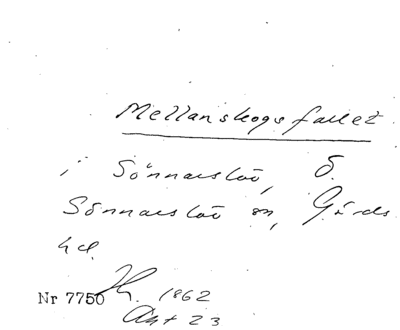 Mellanskogsfallet
i Sönnarslöv, ö.
Sönnarslöv sn, Gärds
hd.
Nr 7750 H. 1862
Akt 23